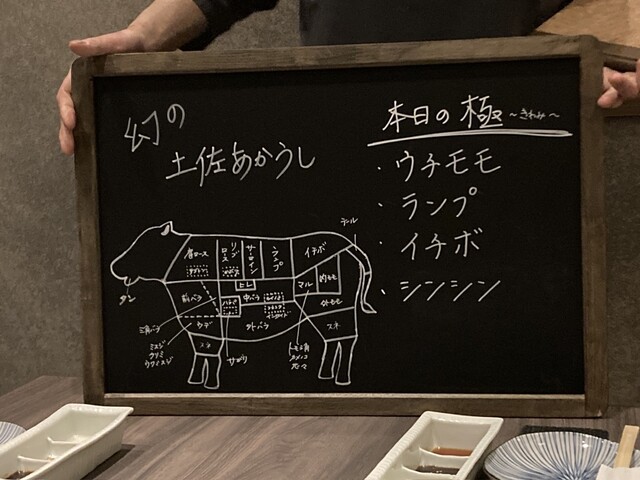 幻の
土佐あかうし
本日の極 ～きわみ～
・ウチモモ
・ランプ
・イチボ
・シンシン
テール
肩ロース
リブロース
サーロイン
ランプ
イチボ
ヒレ
マル
内モモ
外モモ
前バラ
中バラ
外バラ
ウデ
スネ
スネ
タン
三角バラ
ミスジ
クリミ
サガリ
トモ三角
カメノコ